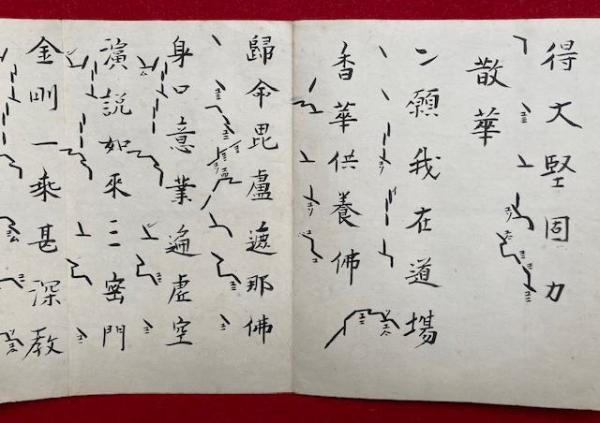 得大堅固力
散華
願我在道場
香華供養佛
歸命毘盧遮那佛
身口意業遍虚空
演説如來三密門
金剛一乗甚深教